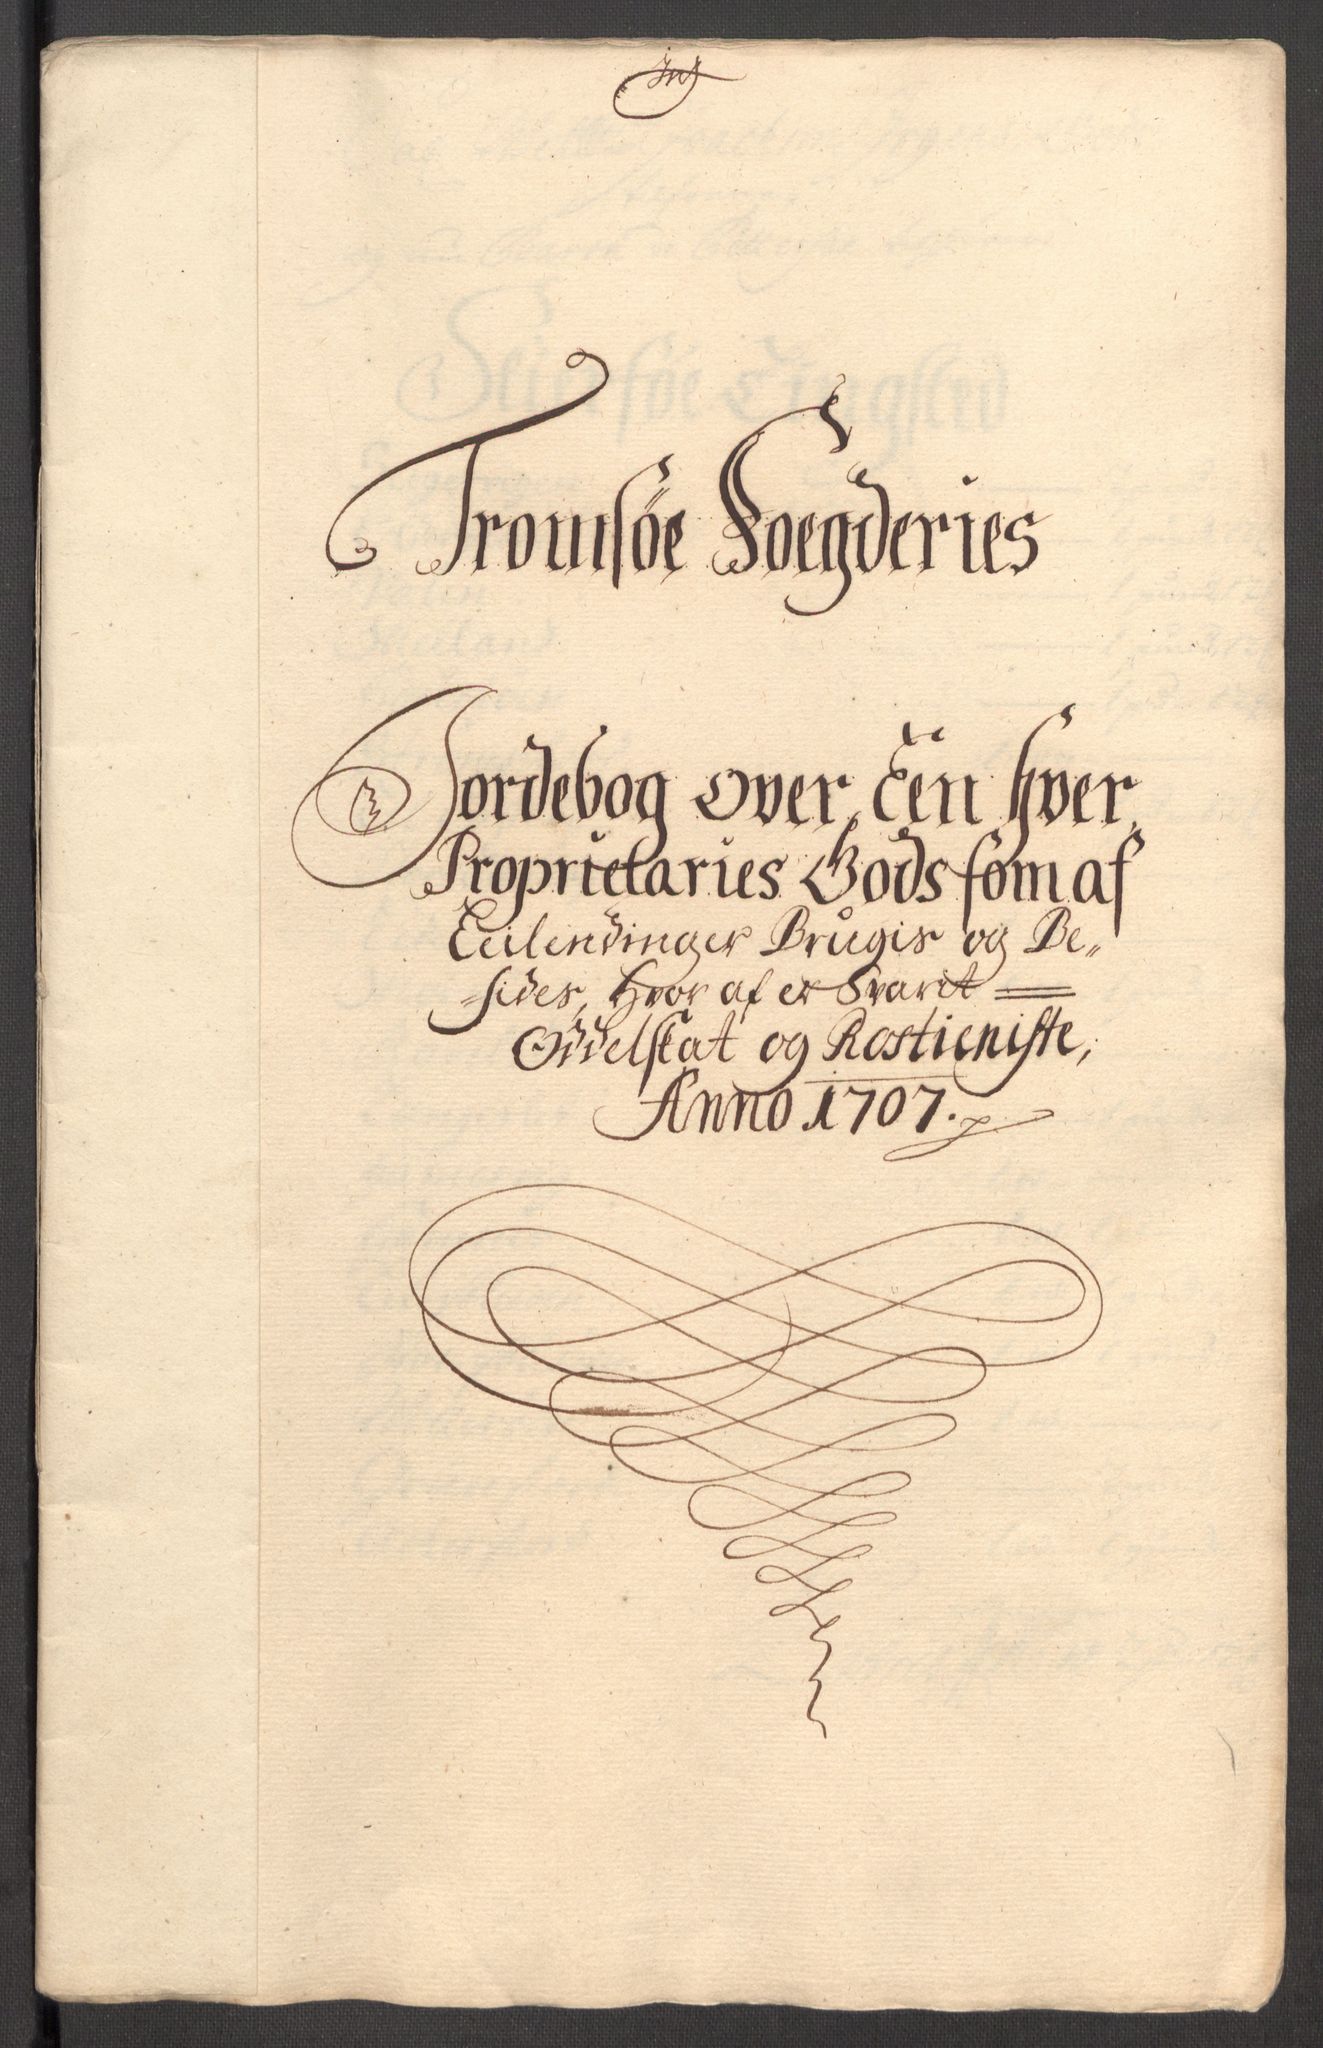 Tromsöe Foegderies
Jordebog over Een hver
Proprietaries Gods som af
Leilendinger Brugis og Be„
„sides, hvor af er Svarit
Oddelskat og Rostieniste,
Anno 1707.